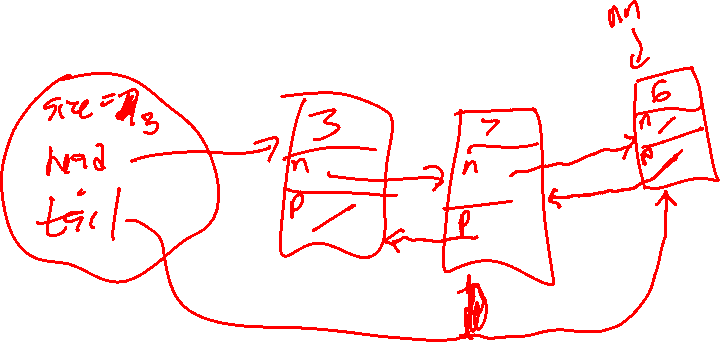 size = 3
head
tail
3
n
p
7
n
p
nn
6
n
p